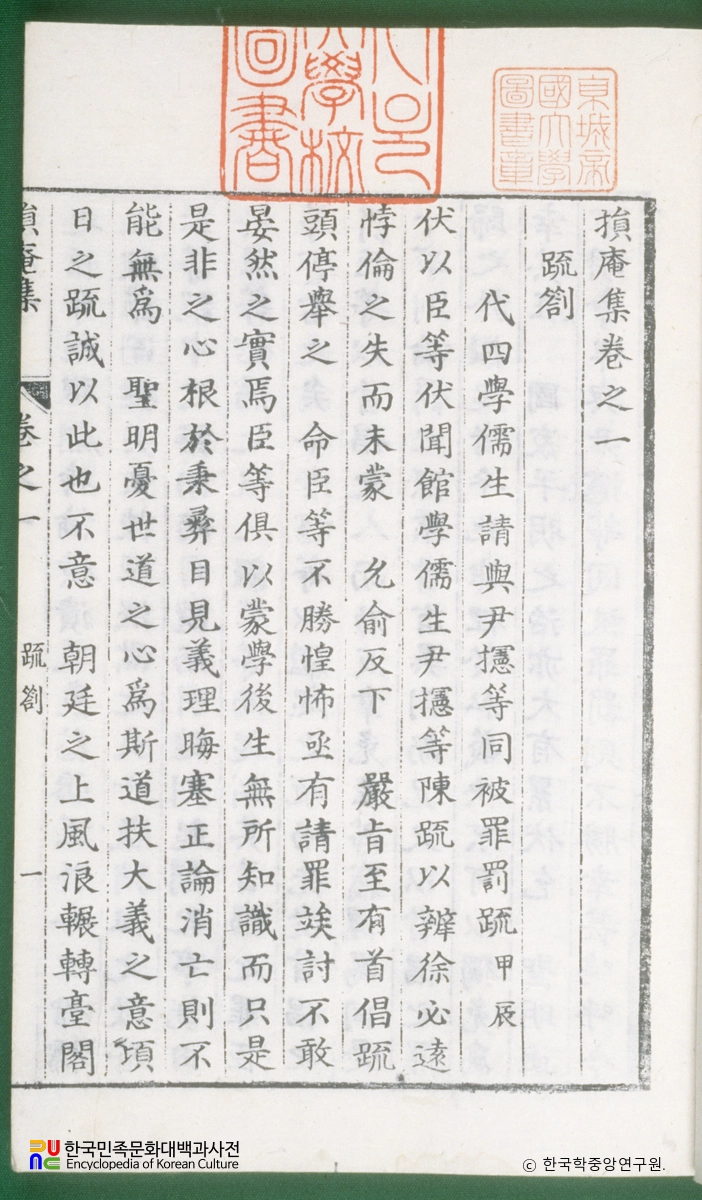 損庵集卷之一
疏劄
代四學儒生請與尹攇等同被罪罰疏甲辰
伏以臣等伏聞館學儒生尹攇等陳疏以辨徐必遠
悖倫之失而未蒙 允俞反下 嚴旨至有首倡疏
頭停擧之 命臣等不勝惶怖亟有請罪竢討不敢
晏然之實焉臣等俱以蒙學後生無所知識而只是
是非之心根於秉彝目見義理晦塞正論消亡則不
能無爲 聖明憂世道之心爲斯道扶大義之意頃
日之疏誠以此也不意 朝廷之上風浪輾轉臺閣
損庵集 卷之一 疏劄 一
京城帝
國大學
圖書章
學校
圖書
한국민족문화대백과사전
Encyclopedia of Korean Culture
© 한국학중앙연구원.